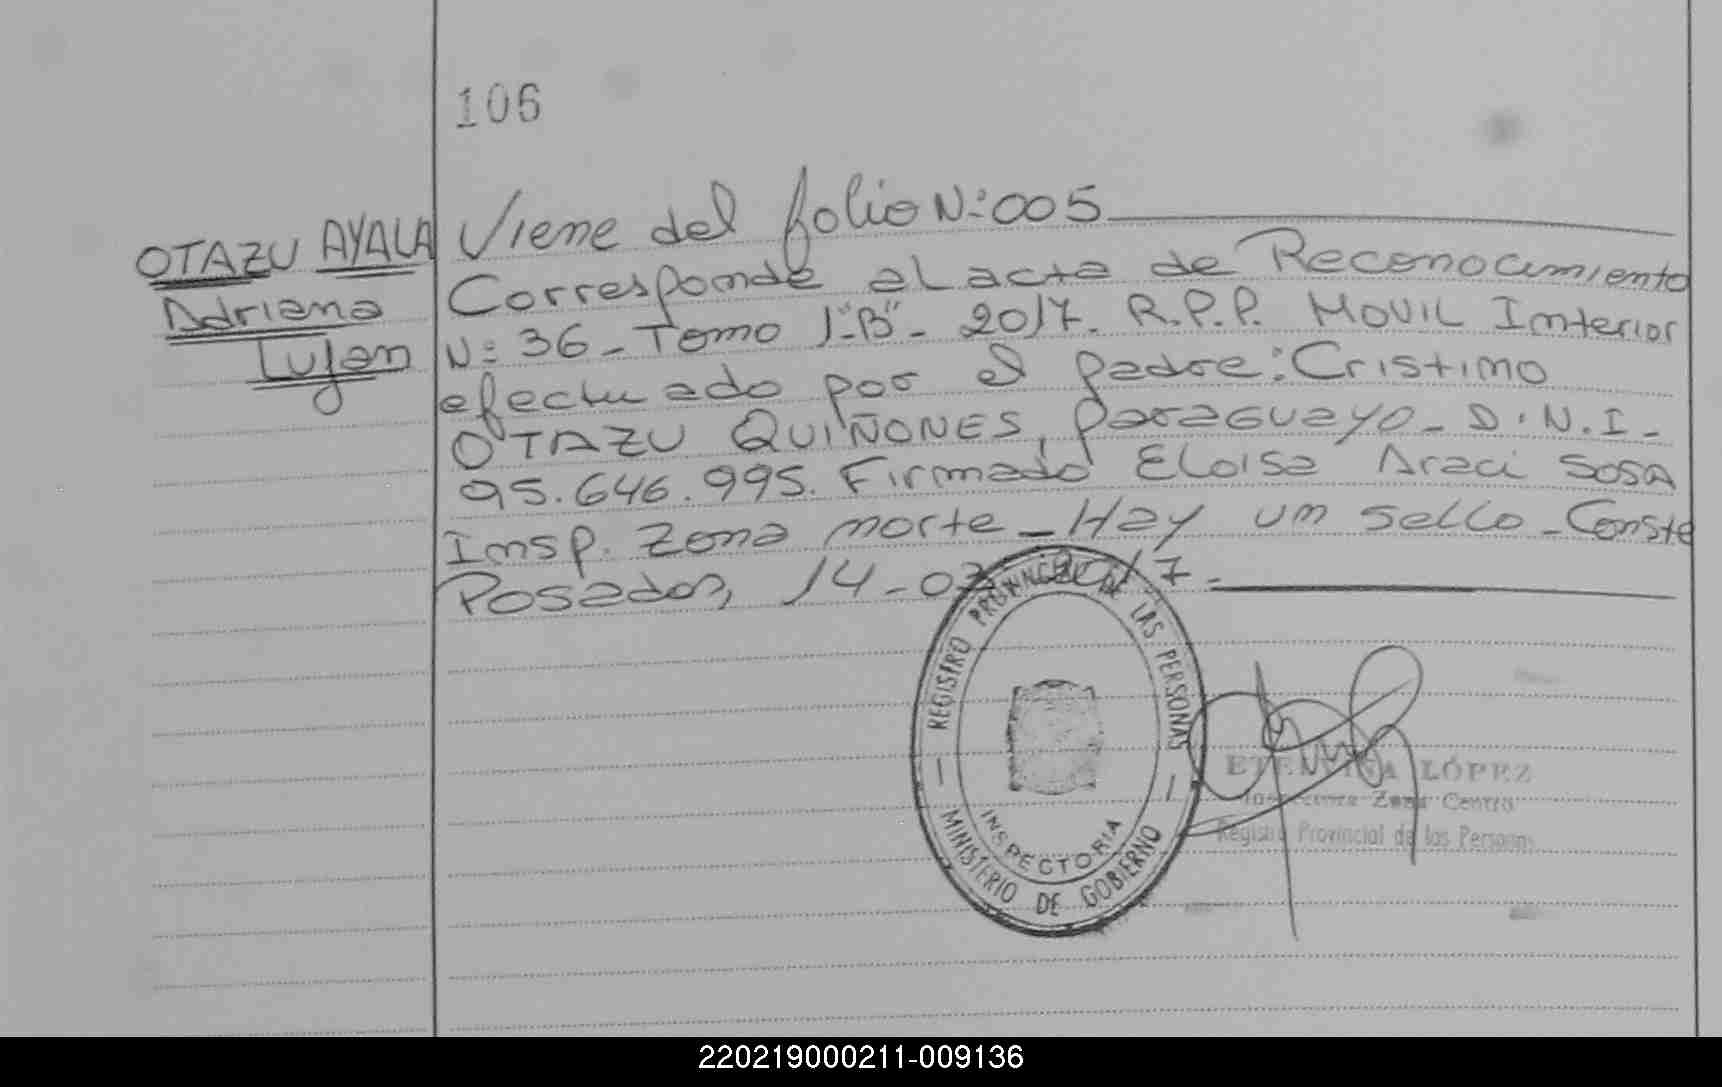 106
OTAZU AYALA
Adriana
Lujan
Viene del folio N:005
Corresponde al acta de Reconocimiento
N: 36 - Tomo 1-"B" - 2017. R.P.P. MOVIL Interior
efectuado por el padre: Cristino
OTAZU QUIÑONES, paraguayo - D.N.I -
95.646.995. Firmado Eloisa Araci SOSA
Insp. Zona norte - Hay un sello - Conste
Posadas, 14-03-2017.-
REGISTRO PROVINCIAL DE LAS PERSONAS
INSPECTORIA
MINISTERIO DE GOBIERNO
ETELVINA LÓPEZ
Inspectora Zona Centro
Registro Provincial de las Personas
220219000211-009136